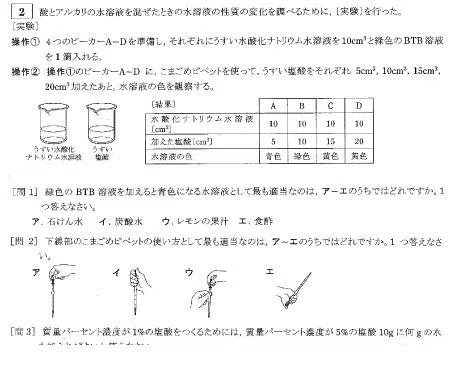 2 酸とアルカリの水溶液を混ぜたときの水溶液の性質の変化を調べるために,[実験]を行った。
[実験]
操作① 4つのビーカーA~Dを準備し,それぞれにうすい水酸化ナトリウム水溶液を10cm³と緑色のBTB溶液
を1滴入れる。
操作② 操作①のビーカーA~Dに,こまごめピペットを使って,うすい塩酸をそれぞれ 5cm³, 10cm³, 15cm³,
20cm³加えたあと,水溶液の色を観察する。
うすい水酸化
ナトリウム水溶液
うすい
塩酸
[結果] A B C D
水酸化ナトリウム水溶液
[cm³] 10 10 10 10
加えた塩酸[cm³] 5 10 15 20
水溶液の色 青色 緑色 黄色 黄色
[問1] 緑色のBTB溶液を加えると青色になる水溶液として最も適当なのは,ア~エのうちではどれですか。1
つ答えなさい。
ア.石けん水 イ.炭酸水 ウ.レモンの果汁 エ.食酢
[問2] 下線部のこまごめピペットの使い方として最も適当なのは,ア~エのうちではどれですか。1つ答えなさ
い。
ア イ ウ エ
[問3] 質量パーセント濃度が1%の塩酸をつくるためには,質量パーセント濃度が5%の塩酸10gに何gの水